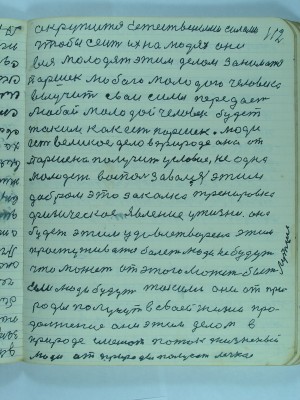 окружится естественными силами 112
чтобы сеит их на людях они
вся молодят этим делом занимат
паршек любого молодого человека
выучит свои силы передает
любой молодой человек будет
таким как ест паршек. люди
ест великое дело в природе они от
паршека получит условие, не одна
молодеж воспользовалася этим
добром это закалка тренировка
физическое явление у жизне они
будет этим удовлетворена этим
простуживать болет люди не будут
что может от этого может быт
если люди будут такими они от при-
роды получут в своей жизни про-
должение они этим делом в
природе сменют поток жизненый
люди от природы получат легкое